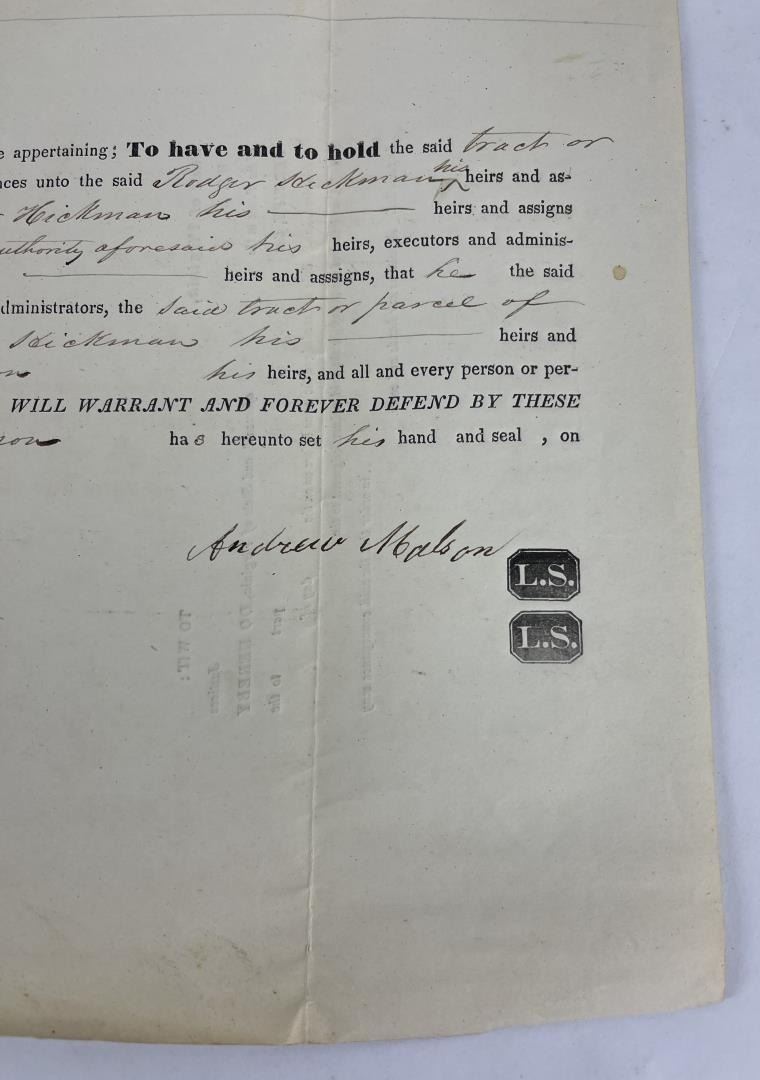 e appertaining; To have and to hold the said tract or
nces unto the said Rodger Hickman his heirs and as-
Hickman his heirs and assigns
uthority aforesaid his heirs, executors and adminis-
heirs and asssigns, that he the said
dministrators, the said tract or parcel of
Hickman his heirs and
n his heirs, and all and every person or per-
WILL WARRANT AND FOREVER DEFEND BY THESE
son has hereunto set his hand and seal , on
Andrew Malson
L.S.
L.S.
TO WIT:
DO HEREBY
to the